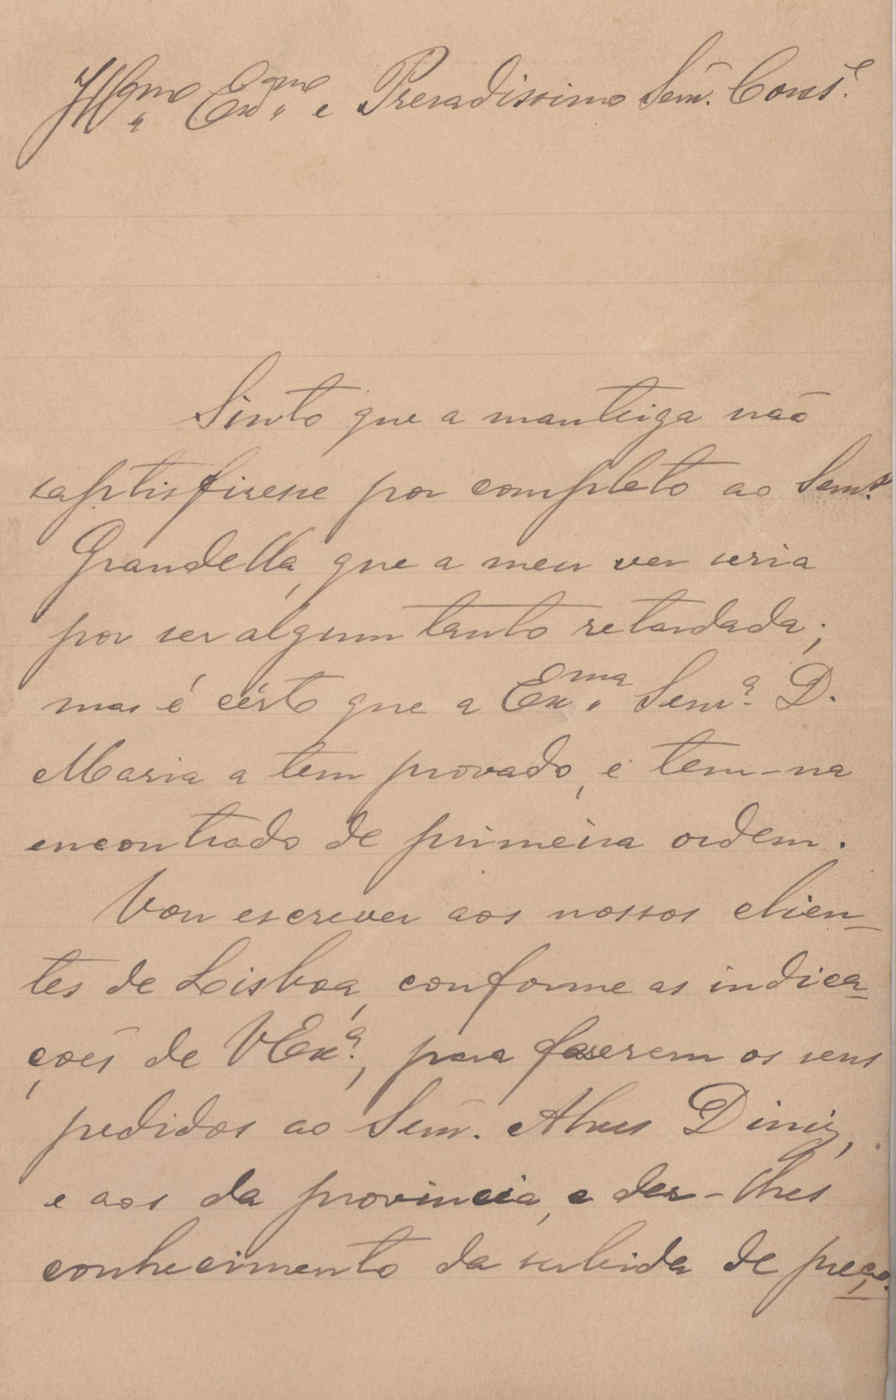 Illmo. Exmo. e Presadissimo Senr. Conse.
Sinto que a manteiga não
saptisfisesse por completo ao Senr.
Grandella, que a meu ver seria
por ser algum tanto retardada;
mas é cérto que a Exma. Senra. D.
Maria a tem provado, e tem-na
encontrado de primeira ordem.
Vou escrever aos nossos clien-
tes de Lisboa, conforme as indica-
ções de VExa., para faserem os seus
pedidos ao Senr. Alves Diniz,
e aos da provincia, e dar-lhes
conhecimento da subida de preço.